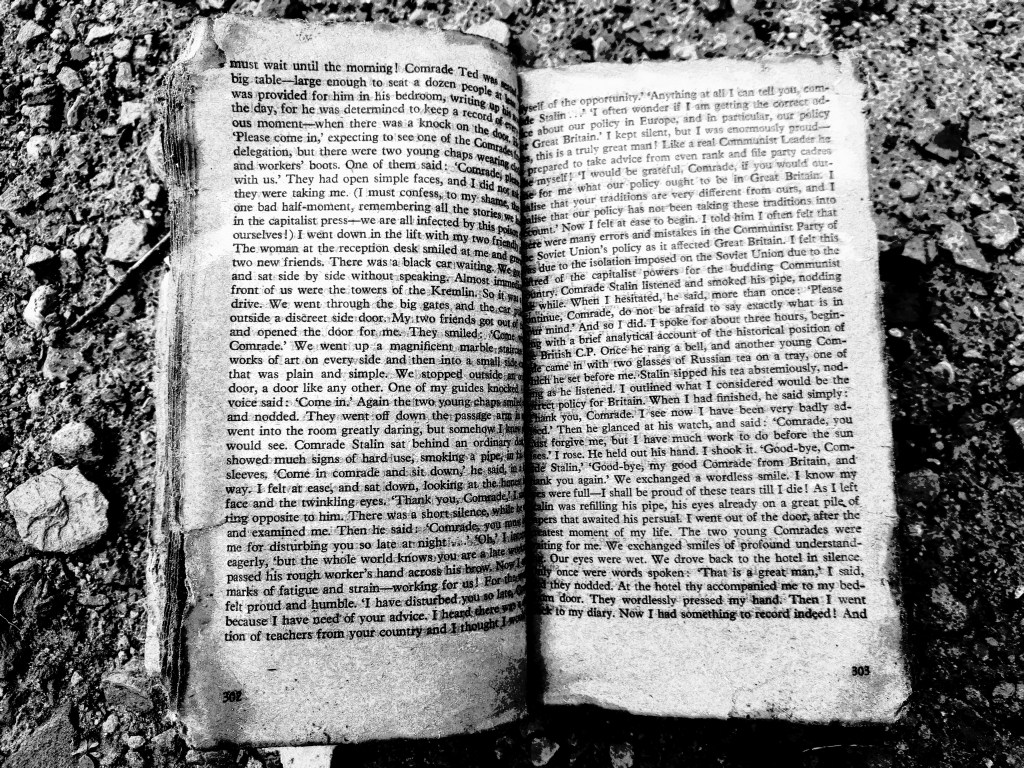 must wait until the morning! Comrade Ted was
big table—large enough to seat a dozen people at
was provided for him in his bedroom, writing up his
the day, for he was determined to keep a record of
ous moment—when there was a knock on the door.
'Please come in,' expecting to see one of the Comrades
delegation, but there were two young chaps wearing
and workers' boots. One of them said: 'Comrade,
with us.' They had open simple faces, and I did not
they were taking me. (I must confess, to my shame,
one bad half-moment, remembering all the stories we
in the capitalist press—we are all infected by this poison
ourselves!) I went down in the lift with my two friendly
The woman at the reception desk smiled at me and
two new friends. There was a black car waiting. We
and sat side by side without speaking. Almost
front of us were the towers of the Kremlin. So it was
drive. We went through the big gates and the car
outside a discreet side door. My two friends got out of
and opened the door for me. They smiled: 'Come
Comrade.' We went up a magnificent marble
works of art on every side and then into a small side
that was plain and simple. We stopped outside an
door, a door like any other. One of my guides knocked
voice said: 'Come in.' Again the two young chaps
and nodded. They went off down the passage arm in
went into the room greatly daring, but somehow I
would see. Comrade Stalin sat behind an ordinary
showed much signs of hard use, smoking a pipe, in
sleeves. 'Come in comrade and sit down,' he said, in
way. I felt at ease, and sat down, looking at the honest
face and the twinkling eyes. 'Thank you, Comrade,' I
ting opposite to him. There was a short silence, while he
and examined me. Then he said: 'Comrade, you must
me for disturbing you so late at night . . .' 'Oh,' I
eagerly, 'but the whole world knows you are a late
passed his rough worker's hand across his brow. Now I
marks of fatigue and strain—working for us! For
felt proud and humble. 'I have disturbed you so late,
because I have need of your advice. I heard there was
tion of teachers from your country and I thought I
302
of the opportunity.' 'Anything at all I can tell you, com-
Stalin . . .' 'I often wonder if I am getting the correct ad-
about our policy in Europe, and in particular, our policy
Great Britain.' I kept silent, but I was enormously proud—
this is a truly great man! Like a real Communist Leader he
prepared to take advice from even rank and file party cadres
myself! 'I would be grateful, Comrade, if you would out-
for me what our policy ought to be in Great Britain. I
that your traditions are very different from ours, and I
that our policy has not been taking these traditions into
Now I felt at ease to begin. I told him I often felt that
were many errors and mistakes in the Communist Party of
Soviet Union's policy as it affected Great Britain. I felt this
due to the isolation imposed on the Soviet Union due to the
of the capitalist powers for the budding Communist
Comrade Stalin listened and smoked his pipe, nodding
while. When I hesitated, he said, more than once: 'Please
Comrade, do not be afraid to say exactly what is in
mind.' And so I did. I spoke for about three hours, begin-
with a brief analytical account of the historical position of
British C.P. Once he rang a bell, and another young Com-
came in with two glasses of Russian tea on a tray, one of
he set before me. Stalin sipped his tea abstemiously, nod-
as he listened. I outlined what I considered would be the
policy for Britain. When I had finished, he said simply:
you, Comrade. I see now I have been very badly ad-
Then he glanced at his watch, and said: 'Comrade, you
forgive me, but I have much work to do before the sun
I rose. He held out his hand. I shook it. 'Good-bye, Com-
Stalin,' 'Good-bye, my good Comrade from Britain, and
you again.' We exchanged a wordless smile. I know my
were full—I shall be proud of these tears till I die! As I left
was refilling his pipe, his eyes already on a great pile of
that awaited his persual. I went out of the door, after the
moment of my life. The two young Comrades were
for me. We exchanged smiles of profound understand-
Our eyes were wet. We drove back to the hotel in silence.
once were words spoken: 'That is a great man,' I said,
they nodded. At the hotel thy accompanied me to my bed-
door. They wordlessly pressed my hand. Then I went
to my diary. Now I had something to record indeed! And
303